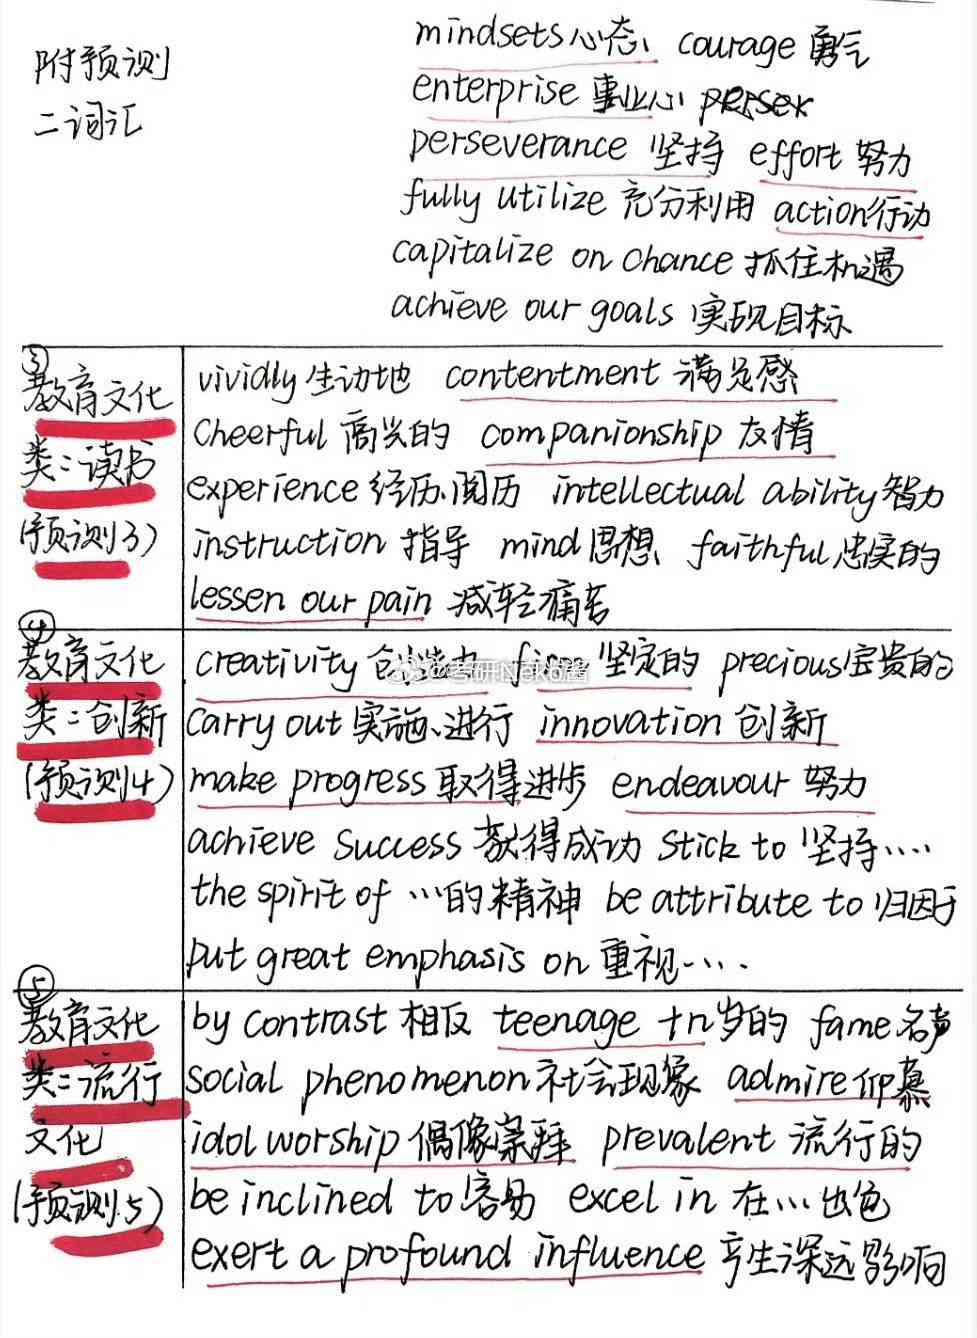 附预测
二词汇
mindsets 心态、 courage 勇气
enterprise 事业心
perseverance 坚持 effort 努力
fully utilize 充分利用 action 行动
capitalize on chance 抓住机遇
achieve our goals 实现目标
③
教育文化
类:读书
(预测3)
vividly 生动地 contentment 满足感
cheerful 高兴的 companionship 友情
experience 经历、阅历 intellectual ability 智力
instruction 指导 mind 思想、 faithful 忠实的
lessen our pain 减轻痛苦
④
教育文化
类:创新
(预测4)
creativity 创造力 firm 坚定的 precious 宝贵的
@考研Neko酱
carry out 实施、进行 innovation 创新
make progress 取得进步 endeavour 努力
achieve success 获得成功 stick to 坚持····
the spirit of ···的精神 be attribute to 归因于
put great emphasis on 重视····
⑤
教育文化
类:流行
文化
(预测5)
by contrast 相反 teenage 十几岁的 fame 名声
social phenomenon 社会现象 admire 仰慕
idol worship 偶像崇拜 prevalent 流行的
be inclined to 容易 excel in 在···出色
exert a profound influence 产生深远影响